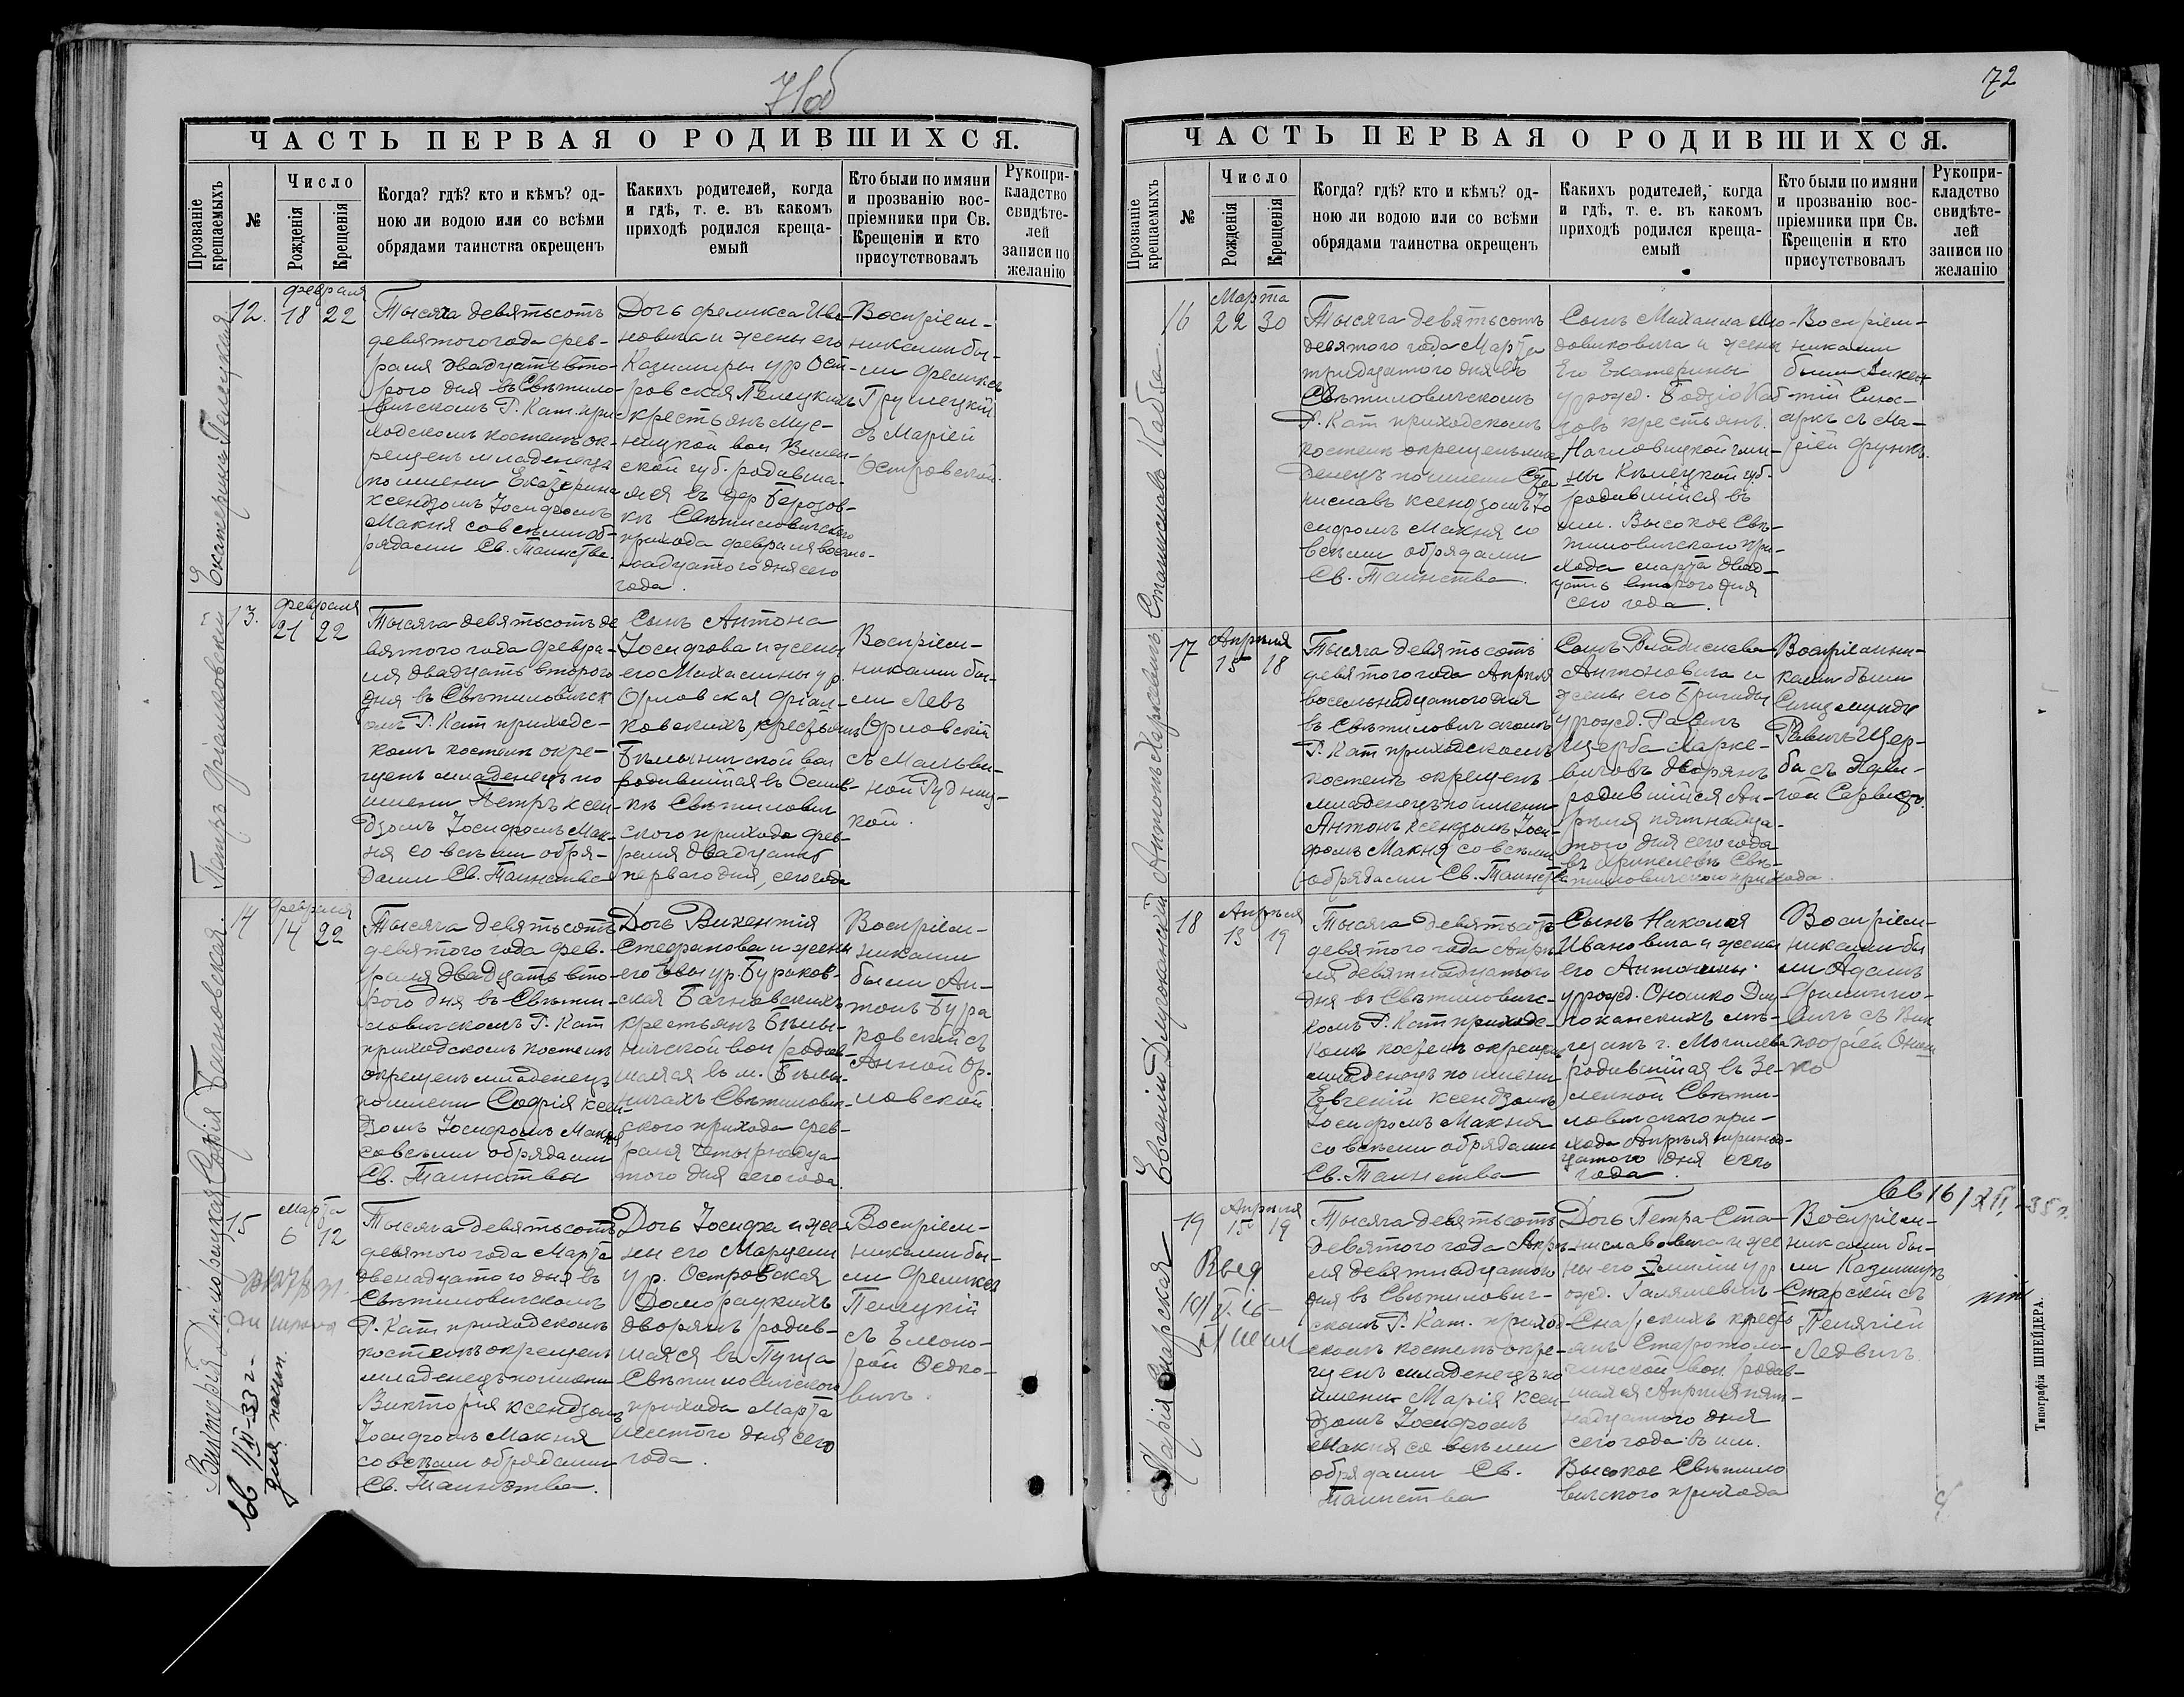 71об
ЧАСТЬ ПЕРВАЯ О РОДИВШИХСЯ.
Прозваніе крещаемыхъ
№
Число
Рожденія
Крещенія
Когда? гдѣ? кто и кѣмъ? од-
ною ли водою или со всѣми
обрядами таинства окрещенъ
Какихъ родителей, когда
и гдѣ, т. е. въ какомъ
приходѣ родился креща-
емый
Кто были по имяни
и прозванію вос-
пріемники при Св.
Крещеніи и кто
присутствовалъ
Рукопри-
кладство
свидѣте-
лей
записи по
желанію
Екатерина
12.
февраля
18 22
Тысяча девятьсотъ
девятого года фев-
раля двадцать вто-
рого дня въ Свѣтило-
вичскомъ Р. Кат. при-
ходскомъ костелѣ ок-
рещенъ младенецъ
по имени Екатерина
ксендзомъ Іосифомъ
Макня со всѣми об-
рядами Св. Таинства.
Дочь Феликса Ива-
новича и жены его
Казимиры ур Ост-
ровская
крестьянъ
вол Вилен-
ской губ. родивша-
яся въ дер Березов-
кѣ Свѣтиловичского
прихода февраля восем-
надцатого дня сего
года.
Воспріем-
никами бы-
ли Феликсъ
съ Маріей
Островской.
Петръ Фіалковскій
13.
февраля
21 22
Тысяча девятьсотъ де
вятого года февра-
ля двадцать второго
дня въ Свѣтиловичск
омъ Р. Кат приходс-
комъ костелѣ окре-
щенъ младенецъ по
имени Петръ ксен-
дзомъ Іосифомъ Мак-
ня со всѣми обря-
дами Св. Таинства
Сынъ Антона
Іосифова и жены
его Михалины ур.
Орловская Фіал-
ковскихъ, крестьянъ
Бѣлыничской вол
родившійся въ Ослив-
кѣ Свѣтилович
ского прихода фев-
раля двадцать
первого дня, сего года
Воспріем-
никами бы-
ли Левъ
Орловскій
съ Мальви-
ной Рудниц-
кой.
Софія
14
февраля
14 22
Тысяча девятьсотъ
девятого года фев-
раля двадцать вто-
рого дня въ Свѣти-
ловичскомъ Р. Кат
приходскомъ костелѣ
окрещенъ младенецъ
по имени Софія ксен-
дзомъ Іосифомъ Макня
со всѣми обрядами
Св. Таинства
Дочь Викентія
Стефанова и жены
его Евы ур. Бураков-
ская
крестьянъ Бѣлы-
ничской вол родив-
шаяся въ м. Бѣлы-
ничахъ Свѣтилович-
ского прихода фев-
раля четырнадца
того дня сего года.
Воспріем-
никами
были Ан-
тонъ Бура
ковскій съ
Анной Ор-
ловской
Викторія Доморацкая
15
Марта
6 12
Тысяча девятьсотъ
девятого года Марта
двенадцатого дня въ
Свѣтиловичскомъ
Р. Кат приходскомъ
костелѣ окрещенъ
младенецъ по имени
Викторія ксендзомъ
Іосифомъ Макня
со всѣми обрядами
Св. Таинства.
Дочь Іосифа и же-
ны его Марцели
ур. Островская
Доморацкихъ
дворянъ родив-
шаяся въ Пуща
Свѣтиловичского
прихода Марта
шестого дня сего
года.
Воспріем-
никами бы-
ли Феликсъ
съ Елено-
рой Федко-
вичъ.
72
ЧАСТЬ ПЕРВАЯ О РОДИВШИХСЯ.
Прозваніе крещаемыхъ
№
Число
Рожденія
Крещенія
Когда? гдѣ? кто и кѣмъ? од-
ною ли водою или со всѣми
обрядами таинства окрещенъ
Какихъ родителей, когда
и гдѣ, т. е. въ какомъ
приходѣ родился креща-
емый
Кто были по имяни
и прозванію вос-
пріемники при Св.
Крещеніи и кто
присутствовалъ
Рукопри-
кладство
свидѣте-
лей
записи по
желанію
Станиславъ
16
Марта
22 30
Тысяча девятьсотъ
девятого года Марта
тридцатого дня въ
Свѣтиловичскомъ
Р. Кат приходскомъ
костелѣ окрещенъ мла
денецъ по имени Ста
ниславъ ксендзомъ Іо
сифомъ Макня со
всѣми обрядами
Св. Таинства.
Сынъ Михаила
и жены
Его Екатерины
урожд.
крестьянъ.
гми-
ны Кѣлецкой губ.
родившійся въ
им. Высокое Свѣ-
тиловичского при-
хода марта двад-
цать второго дня
сего года.
Воспріем-
никами
были Викен
тій
съ Ма-
ріей Функъ.
Антонъ Маркевичъ
17
Апрѣля
15 18
Тысяча девятьсотъ
девятого года Апрѣля
восемнадцатого дня
въ Свѣтиловичскомъ
Р. Кат приходскомъ
костелѣ окрещенъ
младенецъ по имени
Антонъ ксендзомъ Іоси-
фомъ Макня со всѣми
обрядами Св. Таинства
Сынъ Владислава
Антоновича и
жены его Бригиды
урожд. Равичъ
Щерба Марке-
вичовъ дворянъ
родившійся Ап-
рѣля пятнадца-
того дня сего года
въ Свѣ-
тиловичского прихода.
Воспріемни-
ками были
Сигизмундъ
Равичъ Щер-
ба съ
Евгеній Длугоканскій
18
Апрѣля
13 19
Тысяча девятьсотъ
девятого года Апрѣ
ля девятнадцатого
дня въ Свѣтиловичс-
комъ Р. Кат приходс-
комъ костелѣ окрещенъ
младенецъ по имени
Евгеній ксендзомъ
Іосифомъ Макня
со всѣми обрядами
Св. Таинства
Сынъ Николая
Ивановича и жены
его Антонины
урожд. Оношко Длу-
гоканскихъ мѣ-
щанъ г. Могилева
родившійся въ Зе-
леной Свѣти-
ловичского при-
хода Апрѣля тринад-
цатого дня сего
года.
Воспріем-
никами бы
ли Адамъ
Филиппо-
вичъ съ Вик
торіей Онош
ко
Марія
19
Апрѣля
15 19
Тысяча девятьсотъ
девятого года Апрѣ-
ля девятнадцатого
дня въ Свѣтилович-
скомъ Р. Кат. приход
скомъ костелѣ окре-
щенъ младенецъ по
имени Марія ксен-
дзомъ Іосифомъ
Макня со всѣми
обрядами Св.
Таинства
Дочь Петра Ста-
ниславовича и же
ны его Эмиліи ур
ожд.
крестъ
янъ
вол. родив-
шаяся Апрѣля пят-
надцатого дня
сего года въ им.
Высокое Свѣтило
вичского прихода
Воспріем-
никами бы-
ли Казимиръ
съ
Пелагіей
Ледвичъ
Типографія ШНЕЙДЕРА.